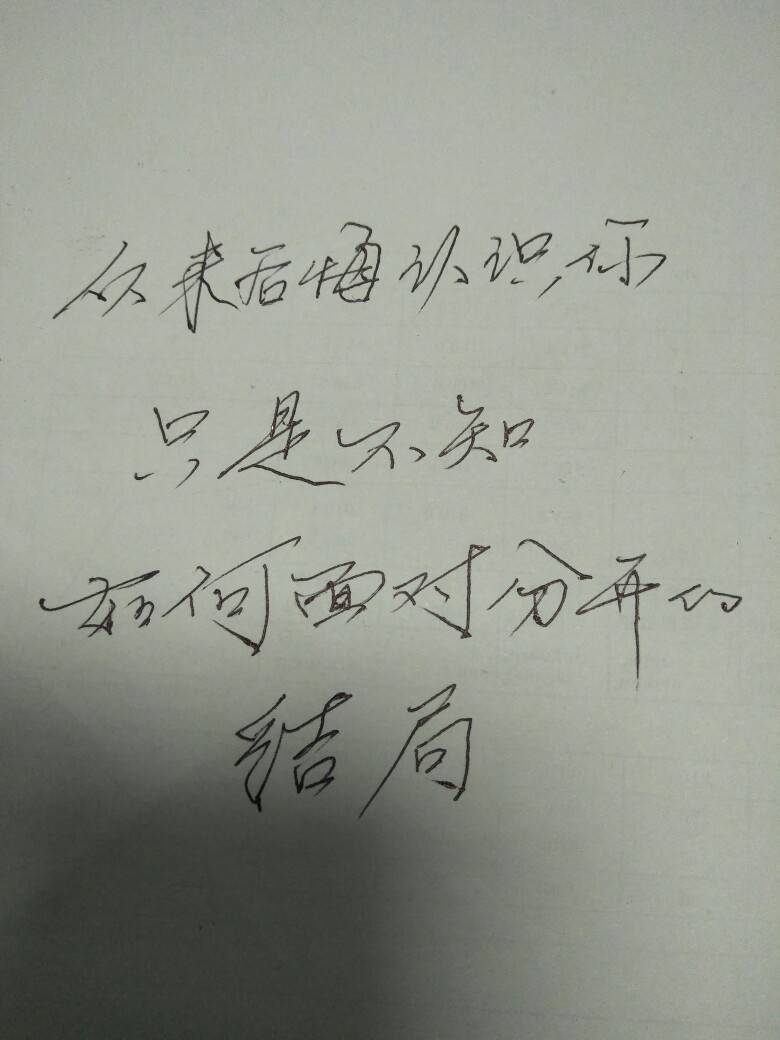 从来后悔认识你
只是不知
如何面对分开的
结局